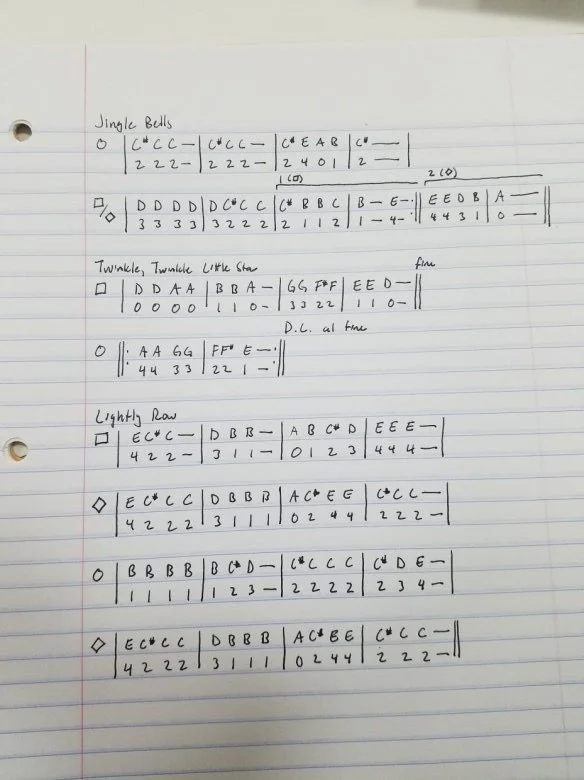 Jingle Bells
○ | C# C C — | C# C C — | C# E A B | C# —— |
2 2 2 — | 2 2 2 — | 2 4 0 1 | 2 ——
1 (□) 2 (◇)
□/◇ | D D D D | D C# C C | C# B B C | B — E — :|| E E D B | A —— ||
3 3 3 3 | 3 2 2 2 | 2 1 1 2 | 1 — 4 — :|| 4 4 3 1 | 0 —— ||
Twinkle, Twinkle Little Star fine
□ | D D A A | B B A — | G G F# F | E E D — ||
0 0 0 0 | 1 1 0 — | 3 3 2 2 | 1 1 0 — ||
D.C. al fine
○ ||: A A G G | F F# E — :||
4 4 3 3 | 2 2 1 — :||
Lightly Row
□ | E C# C — | D B B — | A B C# D | E E E — |
4 2 2 — | 3 1 1 — | 0 1 2 3 | 4 4 4 — |
◇ | E C# C C | D B B B | A C# E E | C# C C — |
4 2 2 2 | 3 1 1 1 | 0 2 4 4 | 2 2 2 — |
○ | B B B B | B C# D — | C# C C C | C# D E — |
1 1 1 1 | 1 2 3 — | 2 2 2 2 | 2 3 4 — |
◇ | E C# C C | D B B B | A C# E E | C# C C — ||
4 2 2 2 | 3 1 1 1 | 0 2 4 4 | 2 2 2 — ||